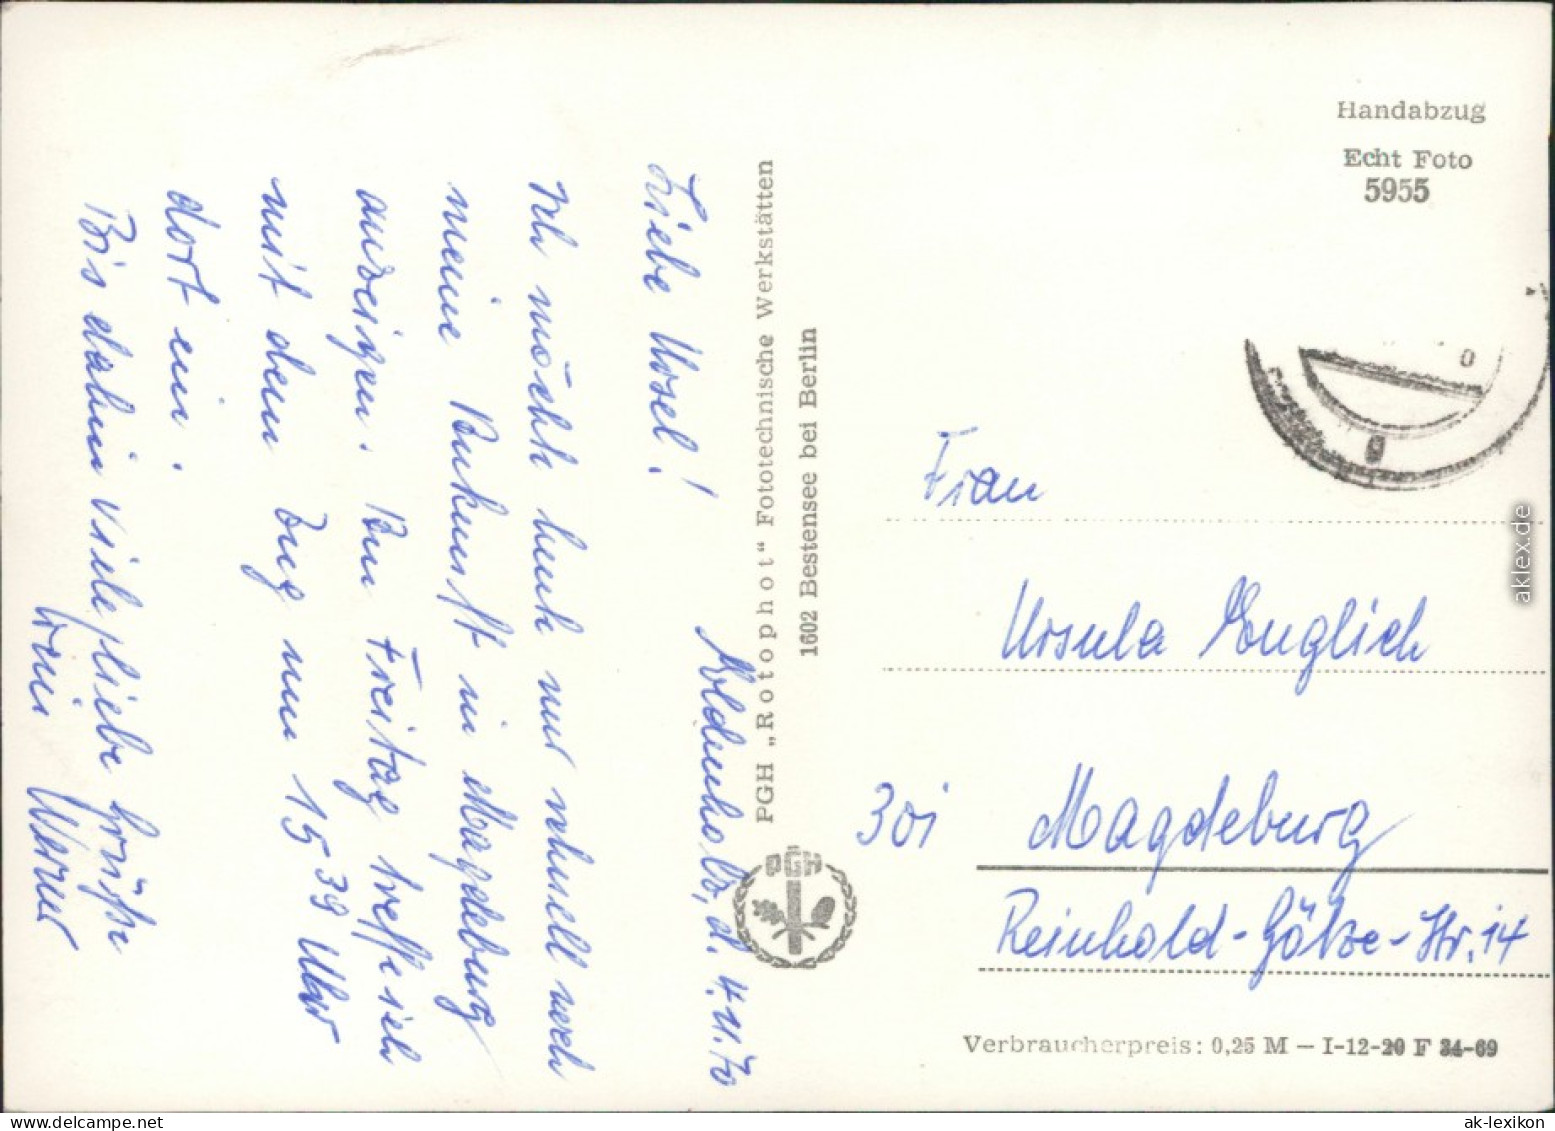 Liebe Ursel!
Aldenholz, d. 4.11.70
Ich möchte heute nur schnell noch
meine Ankunft in Magdeburg
anzeigen. Am Freitag treffe ich
mit dem Zug um 15³⁹ Uhr
dort ein.
Bis dahin viele, liebe Grüße
Werner
PGH „Rotophot“ Fototechnische Werkstätten
1602 Bestensee bei Berlin
PGH
Handabzug
Echt Foto
5955
Frau
Ursula Englich
301 Magdeburg
Reinhold-Götze-Str. 14
Verbraucherpreis: 0,25 M — I-12-20 F 34-69
aklex.de
ak-lexikon